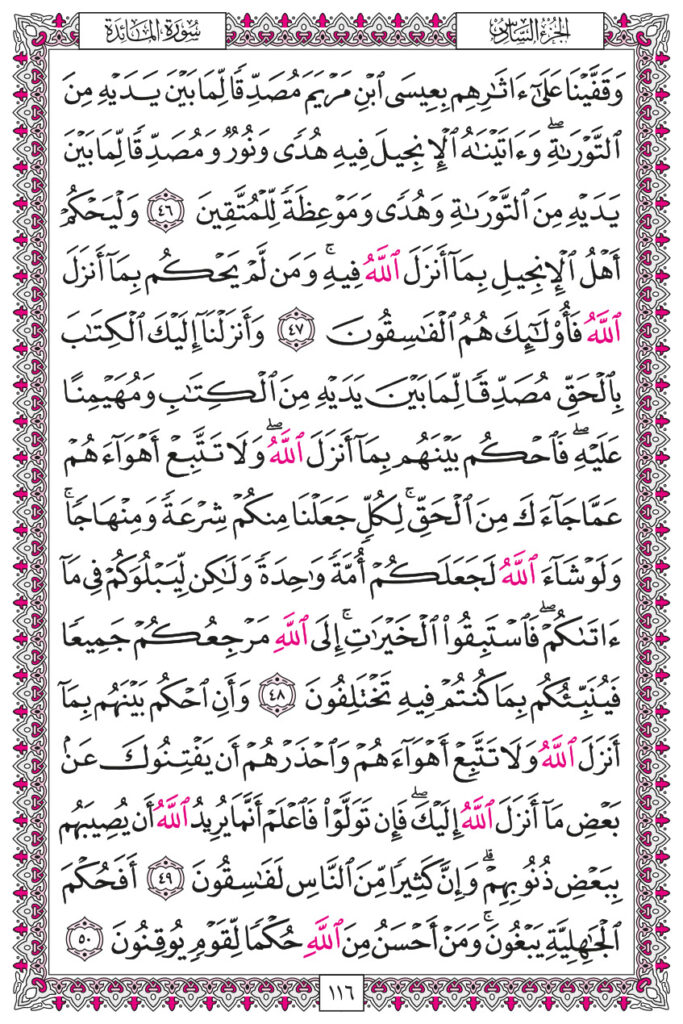 سُورَةُ المَائدَة
الجُزءُ السَّادِسُ
وَقَفَّيْنَا عَلَىٰٓ ءَاثَٰرِهِم بِعِيسَى ٱبْنِ مَرْيَمَ مُصَدِّقًا لِّمَا بَيْنَ يَدَيْهِ مِنَ
ٱلتَّوْرَىٰةِۖ وَءَاتَيْنَٰهُ ٱلْإِنجِيلَ فِيهِ هُدًى وَنُورٌ وَمُصَدِّقًا لِّمَا بَيْنَ
يَدَيْهِ مِنَ ٱلتَّوْرَىٰةِ وَهُدًى وَمَوْعِظَةً لِّلْمُتَّقِينَ ٤٦ وَلْيَحْكُمْ
أَهْلُ ٱلْإِنجِيلِ بِمَآ أَنزَلَ ٱللَّهُ فِيهِۚ وَمَن لَّمْ يَحْكُم بِمَآ أَنزَلَ
ٱللَّهُ فَأُو۟لَٰٓئِكَ هُمُ ٱلْفَٰسِقُونَ ٤٧ وَأَنزَلْنَآ إِلَيْكَ ٱلْكِتَٰبَ
بِٱلْحَقِّ مُصَدِّقًا لِّمَا بَيْنَ يَدَيْهِ مِنَ ٱلْكِتَٰبِ وَمُهَيْمِنًا
عَلَيْهِۖ فَٱحْكُم بَيْنَهُم بِمَآ أَنزَلَ ٱللَّهُۖ وَلَا تَتَّبِعْ أَهْوَآءَهُمْ
عَمَّا جَآءَكَ مِنَ ٱلْحَقِّۚ لِكُلٍّ جَعَلْنَا مِنكُمْ شِرْعَةً وَمِنْهَاجًاۚ
وَلَوْ شَآءَ ٱللَّهُ لَجَعَلَكُمْ أُمَّةً وَٰحِدَةً وَلَٰكِن لِّيَبْلُوَكُمْ فِى مَآ
ءَاتَىٰكُمْۖ فَٱسْتَبِقُوا۟ ٱلْخَيْرَٰتِۚ إِلَى ٱللَّهِ مَرْجِعُكُمْ جَمِيعًا
فَيُنَبِّئُكُم بِمَا كُنتُمْ فِيهِ تَخْتَلِفُونَ ٤٨ وَأَنِ ٱحْكُم بَيْنَهُم بِمَآ
أَنزَلَ ٱللَّهُ وَلَا تَتَّبِعْ أَهْوَآءَهُمْ وَٱحْذَرْهُمْ أَن يَفْتِنُوكَ عَنۢ
بَعْضِ مَآ أَنزَلَ ٱللَّهُ إِلَيْكَۖ فَإِن تَوَلَّوْا۟ فَٱعْلَمْ أَنَّمَا يُرِيدُ ٱللَّهُ أَن يُصِيبَهُم
بِبَعْضِ ذُنُوبِهِمْۗ وَإِنَّ كَثِيرًا مِّنَ ٱلنَّاسِ لَفَٰسِقُونَ ٤٩ أَفَحُكْمَ
ٱلْجَٰهِلِيَّةِ يَبْغُونَۚ وَمَنْ أَحْسَنُ مِنَ ٱللَّهِ حُكْمًا لِّقَوْمٍ يُوقِنُونَ ٥٠
١١٦